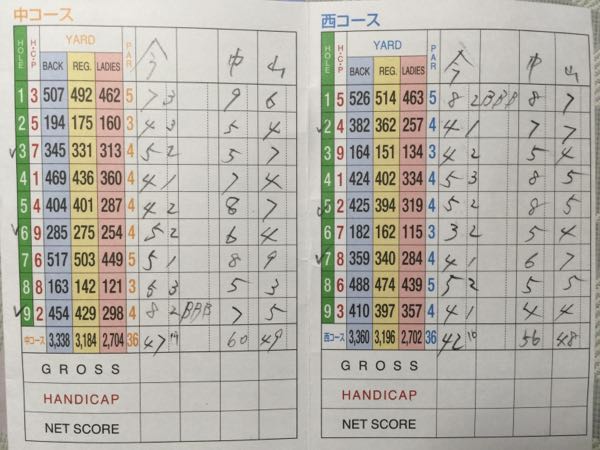 中コース
HOLE H・C・P YARD PAR 今 中 山
BACK REG. LADIES
1 3 507 492 462 5 7 3 9 6
2 5 194 175 160 3 4 3 5 4
✓3 7 345 331 313 4 5 2 5 7
4 1 469 436 360 4 4 1 7 4
5 4 404 401 287 4 4 2 8 7
✓6 9 285 275 254 4 5 2 6 4
7 6 517 503 449 5 5 1 8 9
8 8 163 142 121 3 5 3 5 3
✓9 2 454 429 298 4 8 2 BBB 7 5
中コース 3,338 3,184 2,704 36 47 60 49
GROSS
HANDICAP
NET SCORE
西コース
HOLE H・C・P YARD PAR 今 中 山
BACK REG. LADIES
1 5 526 514 463 5 8 2 BBB 8 7
✓2 4 382 362 257 4 4 1 7 7
3 9 164 151 134 3 4 2 5 4
4 1 424 402 334 4 5 3 8 5
✓5 2 425 394 319 4 5 2 8 5
6 7 182 162 115 3 3 2 5 4
✓7 8 359 340 284 4 4 1 6 7
8 6 488 474 439 5 5 2 5 5
9 3 410 397 357 4 4 1 4 4
西コース 3,360 3,196 2,702 36 42 16 56 48
GROSS
HANDICAP
NET SCORE